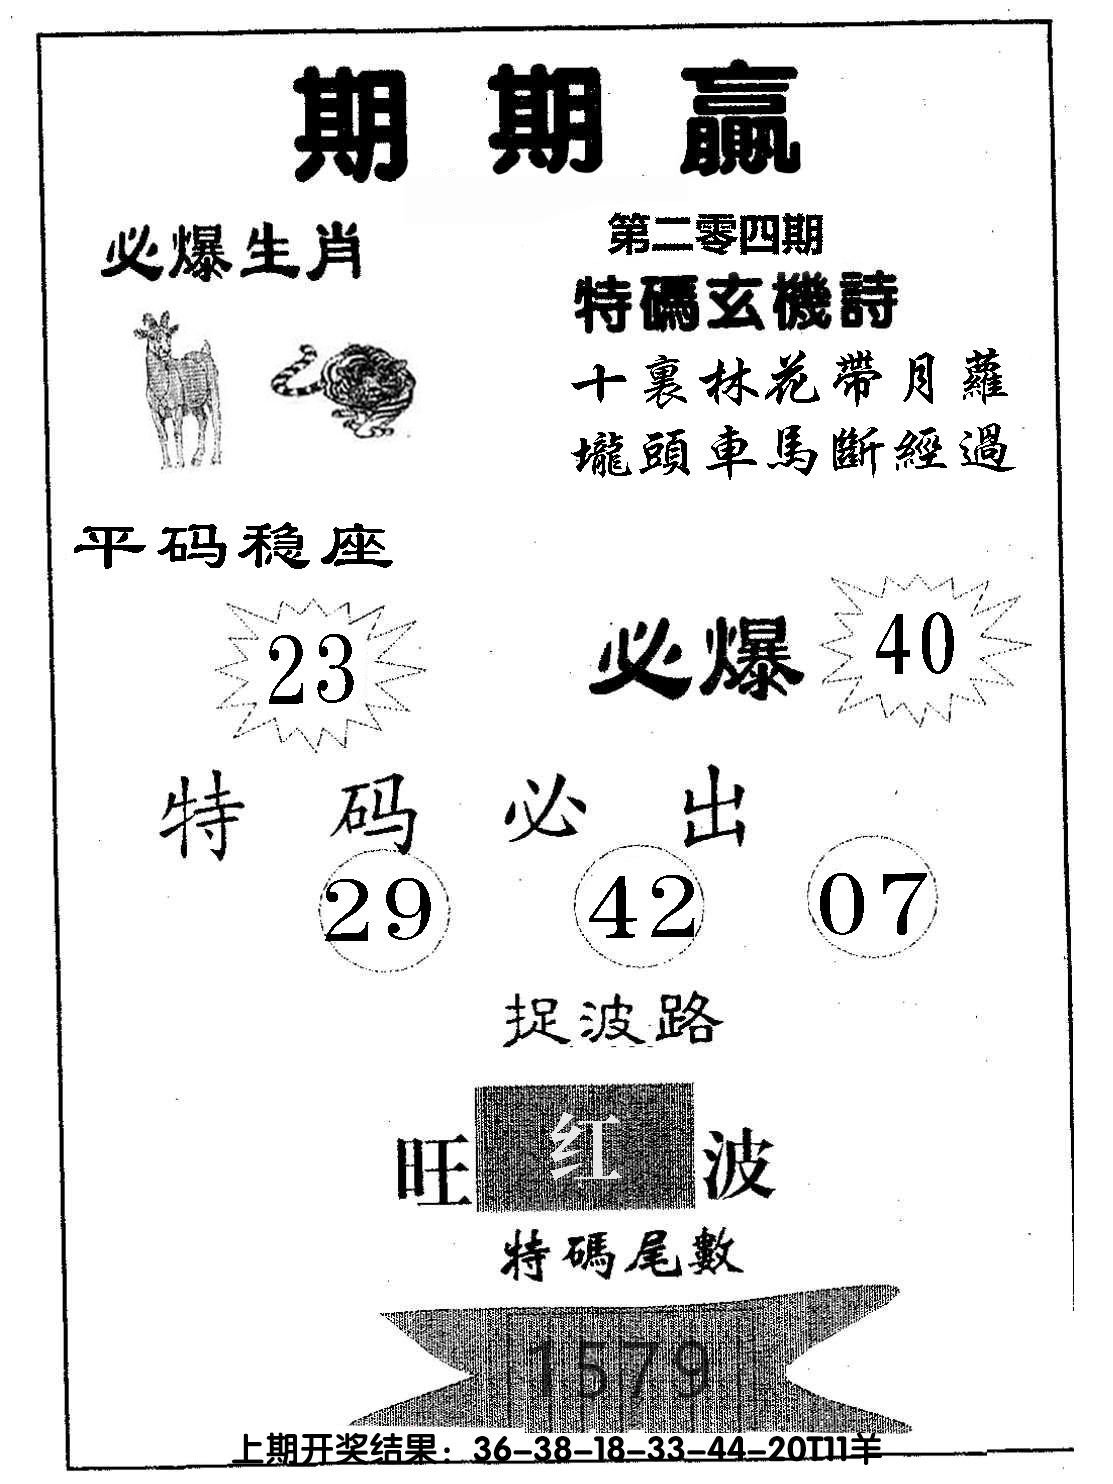 期期赢
必爆生肖
第二零四期
特碼玄機詩
十裏林花帶月蘿
壠頭車馬斷經過
平码稳座
23
必爆
40
特码必出
29 42 07
捉波路
旺红波
特碼尾數
1579
上期开奖结果：36-38-18-33-44-20T11羊